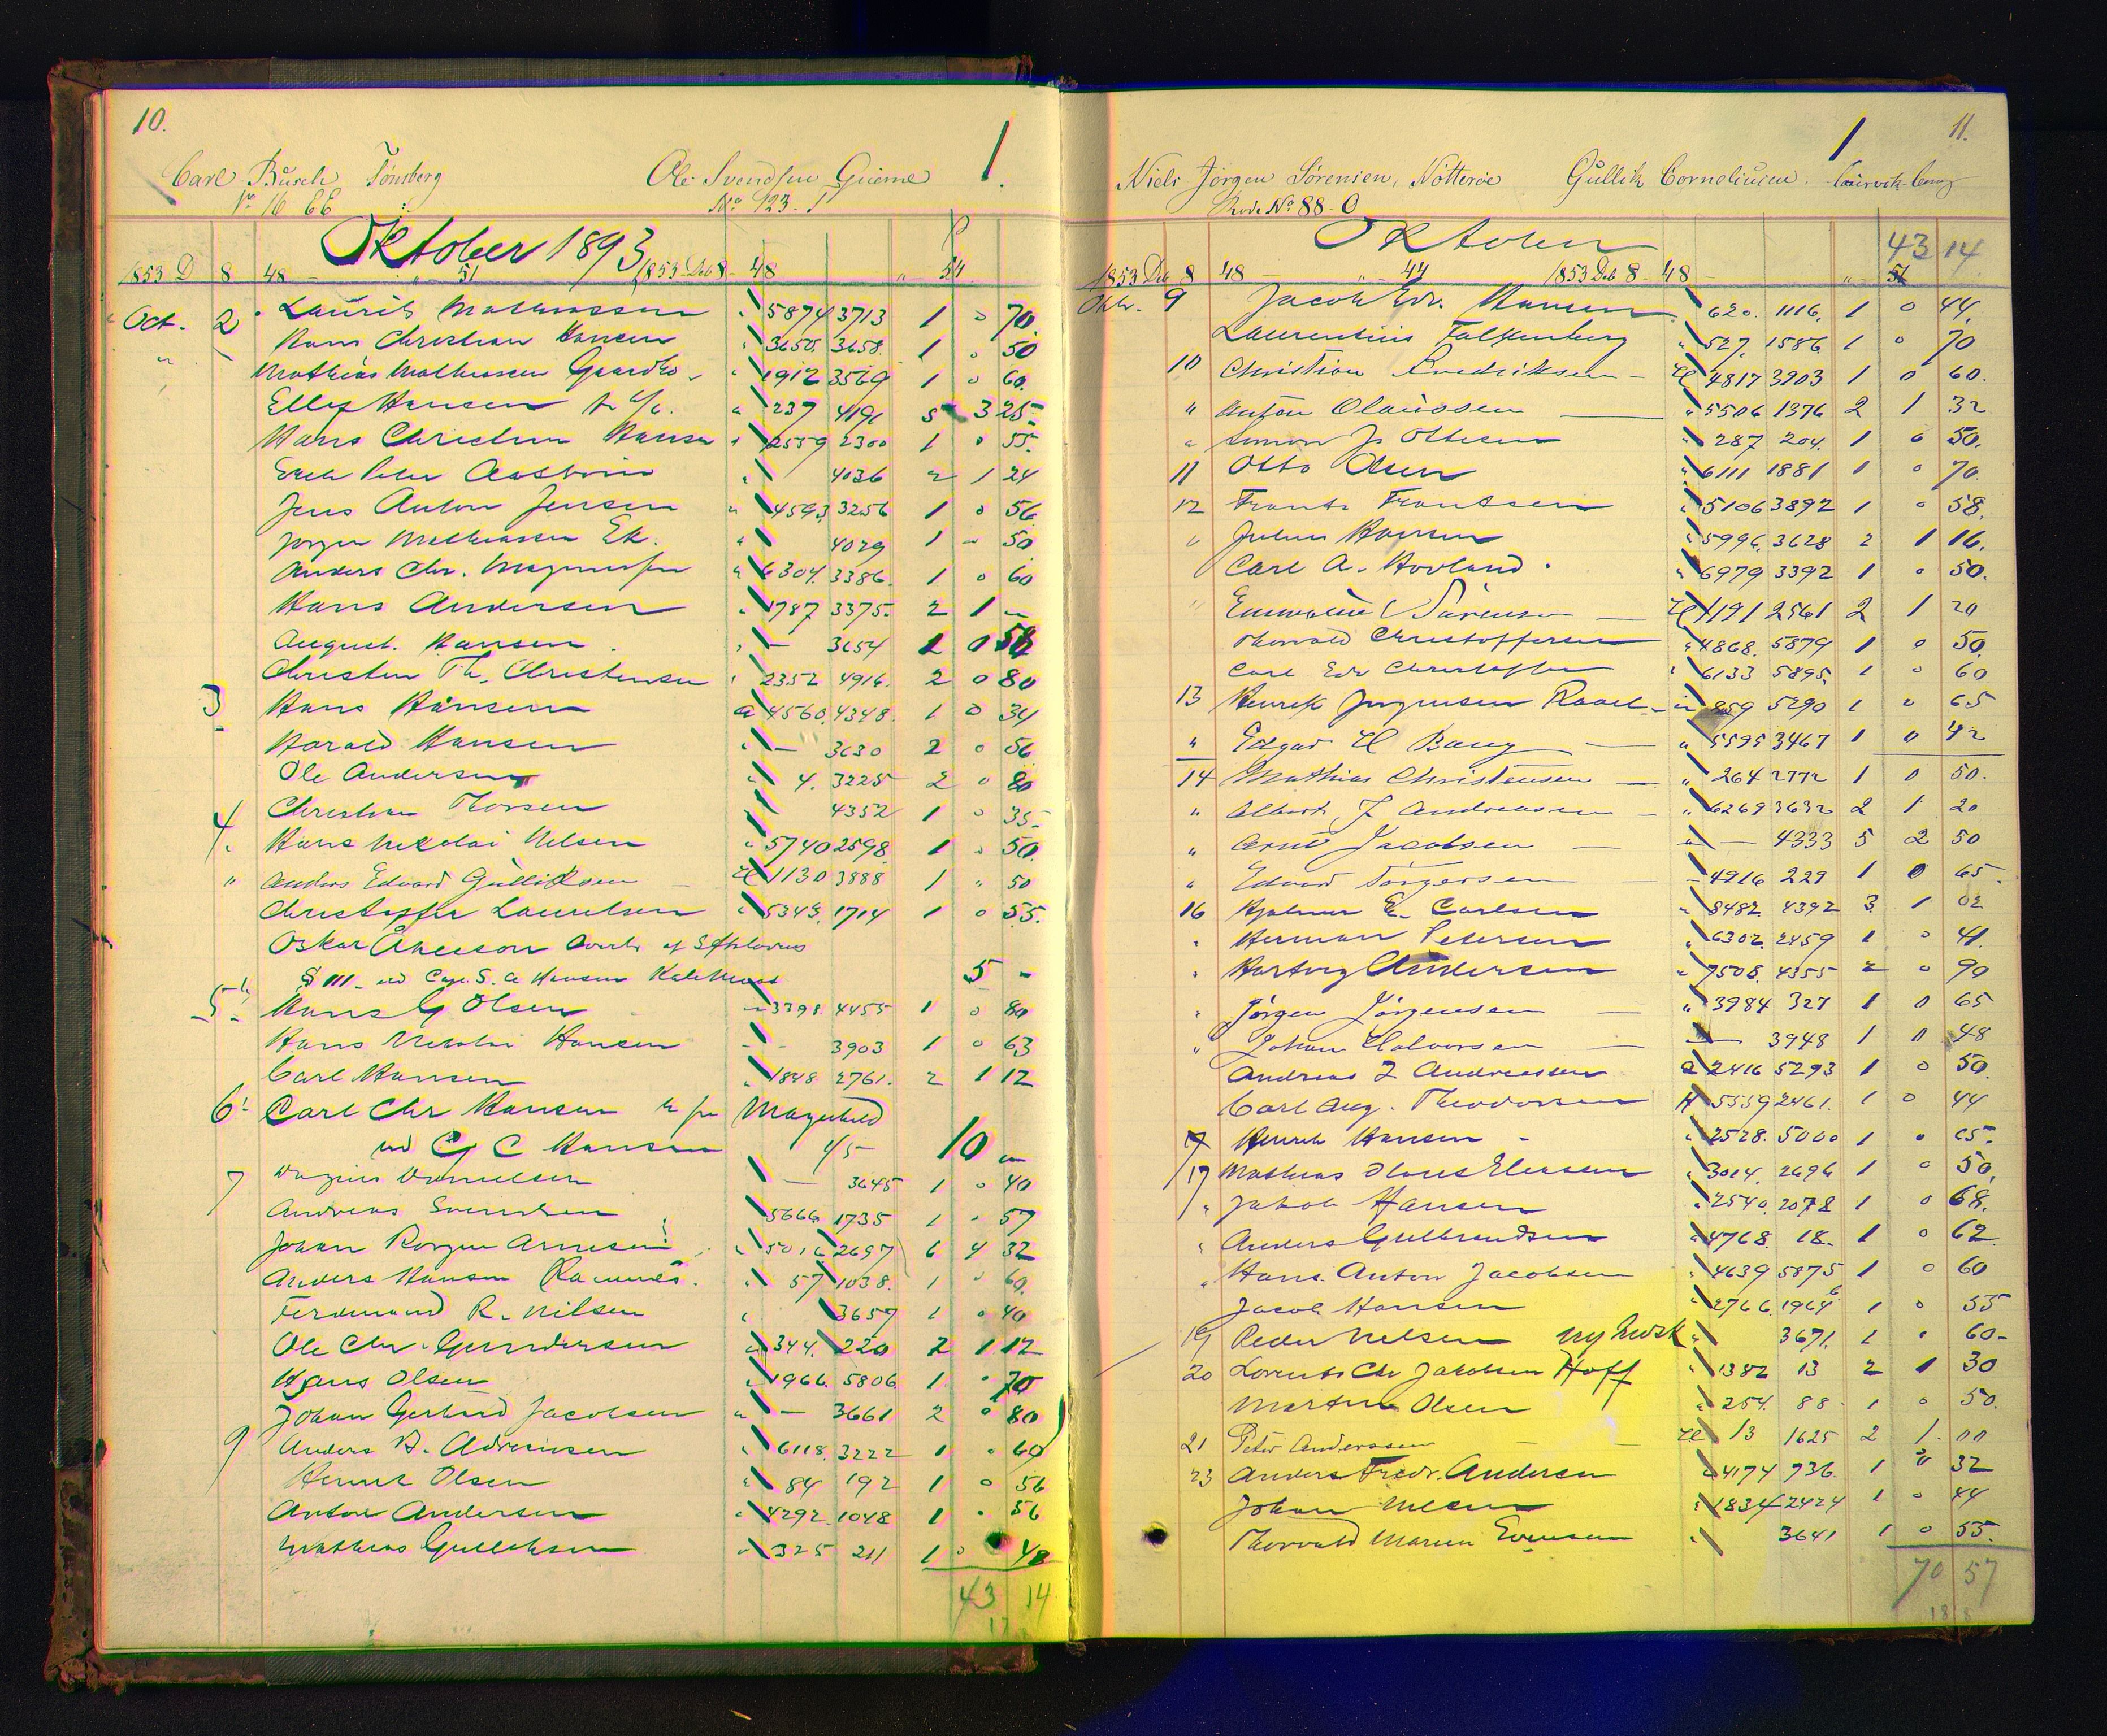 10.
1
Carl Busch Tønsberg
Ole Svendsen Gueme
No 16 EE
No 123. 1
Oktober 1893
1853 D 8 48 — „ 51 1853 Deb 8 - 48 „ 54
Oct. 2 Laurits Mathiassen 5874 3713 1 0 70
Hans Christian Hansen 3650. 3658. 1 0 50
Mathias Mathiassen 1912 3569 1 0 60.
Ellef Hansen 237 4191 5 3 25
Hans Christian Hansen 2559 2300 1 0 55.
Erik Peter 4036 2 1 24
Jens Anton Jensen 4593 3256 1 0 56
Jørgen Mathiassen Ek. 4029 1 - 50
Anders Chr. Magnussen 6304. 3386. 1 0 60
Hans Andersen 1787 3375. 2 1 „
August. Hansen 3654 1 0
Christen Th. Christensen 2352 4916. 2 0 80
3 Hans Hansen 4560. 4348. 1 0 34
Harald Hansen — 3630 2 0 56
Ole Andersen 4. 3225 2 0 80
4 Christian Thorsen 4352 1 0 35
„ Hans Nikolai Nilsen 5740 2598 1 0 50
„ Anders Edvard Gulliksen 1130 3888 1 „ 50
Christoffer Lauritsen 5343. 1714 1 0 55.
Oskar Åkesson
§ 111 5 -
5 Hans G Olsen 3398. 4455 1 0 80
Hans Nikolai Hansen - - 3903 1 0 63
Carl Hansen 1848 2761. 2 1 12
6 Carl Chr Hansen
C C Hansen 4/5 10 „
7 Danielsen — 3645 1 0 40
Andreas Svendsen 5666 1735 1 0 57
Johan Arnesen 5016 2697 6 4 32
Anders Hansen 57 1038. 1 0 60.
Ferdinand R. Nilsen 3657 1 0 40
Ole Chr. Gundersen 344. 220 2 1 12
Hans Olsen 1966. 5806 1 0 70
Johan Gerhard Jacobsen — 3661 2 0 80
9 Anders A. 6118. 3222 1 0 60
Henrik Olsen 84 192 1 0 56
Anton Andersen 4292. 1048 1 0 56
Mathias Gulliksen 325 211 1 0 48
43 14
1 11.
Niels Jörgen Sörensen, Nötteröe
Gullik Corneliusen.
Rode No 88 - O
Oktober 43 14
1853 Deb 8 48 — „ 44 1853 Deb 8 - 48 — „ 51
Oktr. 9 Jacob Edv. Hansen 620. 1116. 1 0 44
Laurentius Falkenberg 527. 1586 1 0 70
10 Christian Fredriksen — 4817 3903 1 0 60.
„ Anton Olaussen — 5506 1376 2 1 32
„ Simon J. Ottesen 287 204. 1 0 50.
11 Otto Olsen 6111 1881 1 0 70.
12 Frants Frantsen 5106 3892 1 0 58.
„ Julius Hansen 5996. 3628 2 1 16.
Carl A. Hovland. 6979 3392 1 0 50.
„ Sörensen — 1191 2561 2 1 20
Thorvald Christoffersen 4868. 5879 1 0 50
Carl Edv Christoffersen 6133 5895. 1 0 60
13 Henrik Jørgensen 859 5290 1 0 65
„ Edgar H Bang — 5595 3467 1 0 42
14 Mathias Christensen — 264 2772 1 0 50.
„ Albert J Andreassen — 6269 3632 2 1 20
„ Arnt Jacobsen — — 4333 5 2 50
„ Edvard Torgersen — 4916 229 1 0 65.
16 Hjalmar E. Carlsen 8482. 4392 3. 1 02
„ Herman Petersen 6302. 2459 1 0 41.
„ Hartvig Andersen 7508. 4355 2 0 90
„ Jörgen Jörgensen — 3984 327 1 0 65
„ Johan Halvorsen — 3948 1 0 48
Andreas J Andreassen 2416 5293 1 0 50.
Carl Aug. Theodorsen 5559 2461. 1 0 44
Henrik Hansen - 2528. 5000 1 0 65.
17 Mathias Eliassen 3014. 2696 1 0 50.
„ Jakob Hansen 2540. 2078 1 0 68.
„ Anders Gulbrandsen 4768. 18- 1 0 62
„ Hans. Anton Jacobsen 4639 5875 1 0 60
Jacob Hansen 2766. 1964 1 0 55
19 Peder Nilsen 3671. 1 0 60-
20 Lorents Chr Jakobsen Hoff 1382 13 2 1 30
Martin Olsen 254. 88. 1 0 50.
21 Peter Anderssen — 13 1625 2 1. 00
23 Anders Fredr. Andersen 4174 736. 1 0 32
Johan Nilsen 1834 2424 1 0 44
Thorvald Marius Evensen 3641 1 0 55.
70 57